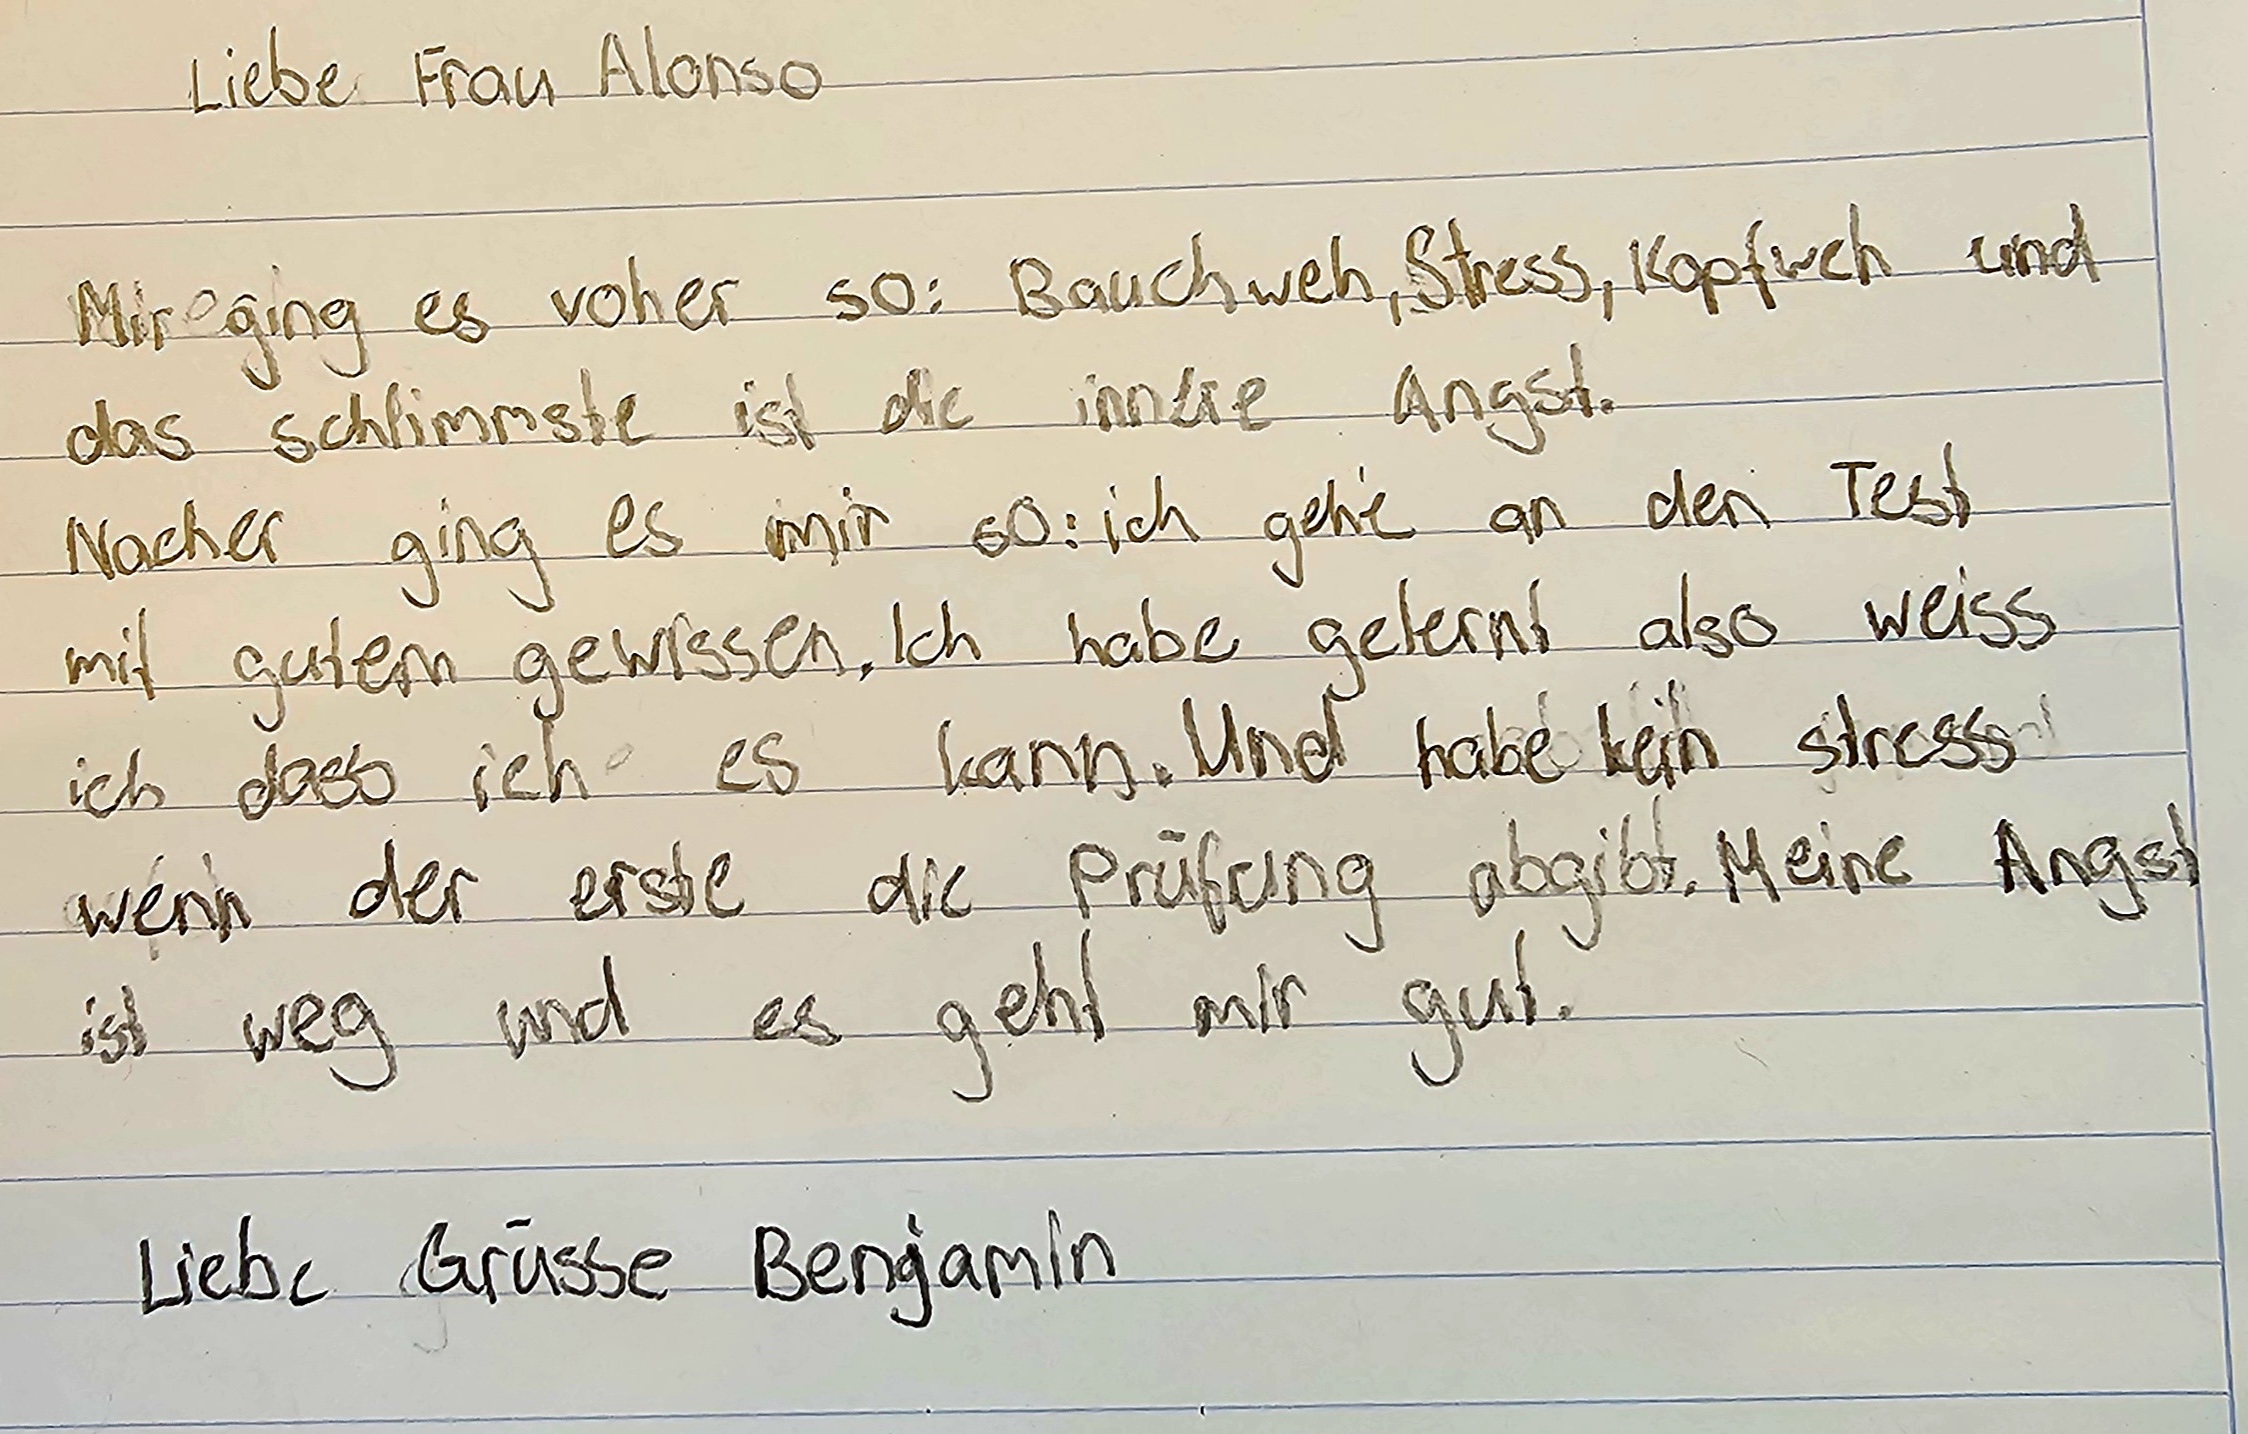 Liebe Frau Alonso
Mir ging es voher so: Bauchweh, Stress, Kopfweh und
das schlimmste ist die innere Angst.
Nacher ging es mir so: ich gehe an den Test
mit gutem gewissen. Ich habe gelernt also weiss
ich dass ich es kann. Und habe kein stress
wenn der erste die Prüfung abgibt. Meine Angst
ist weg und es geht mir gut.
Liebe Grüsse Benjamin